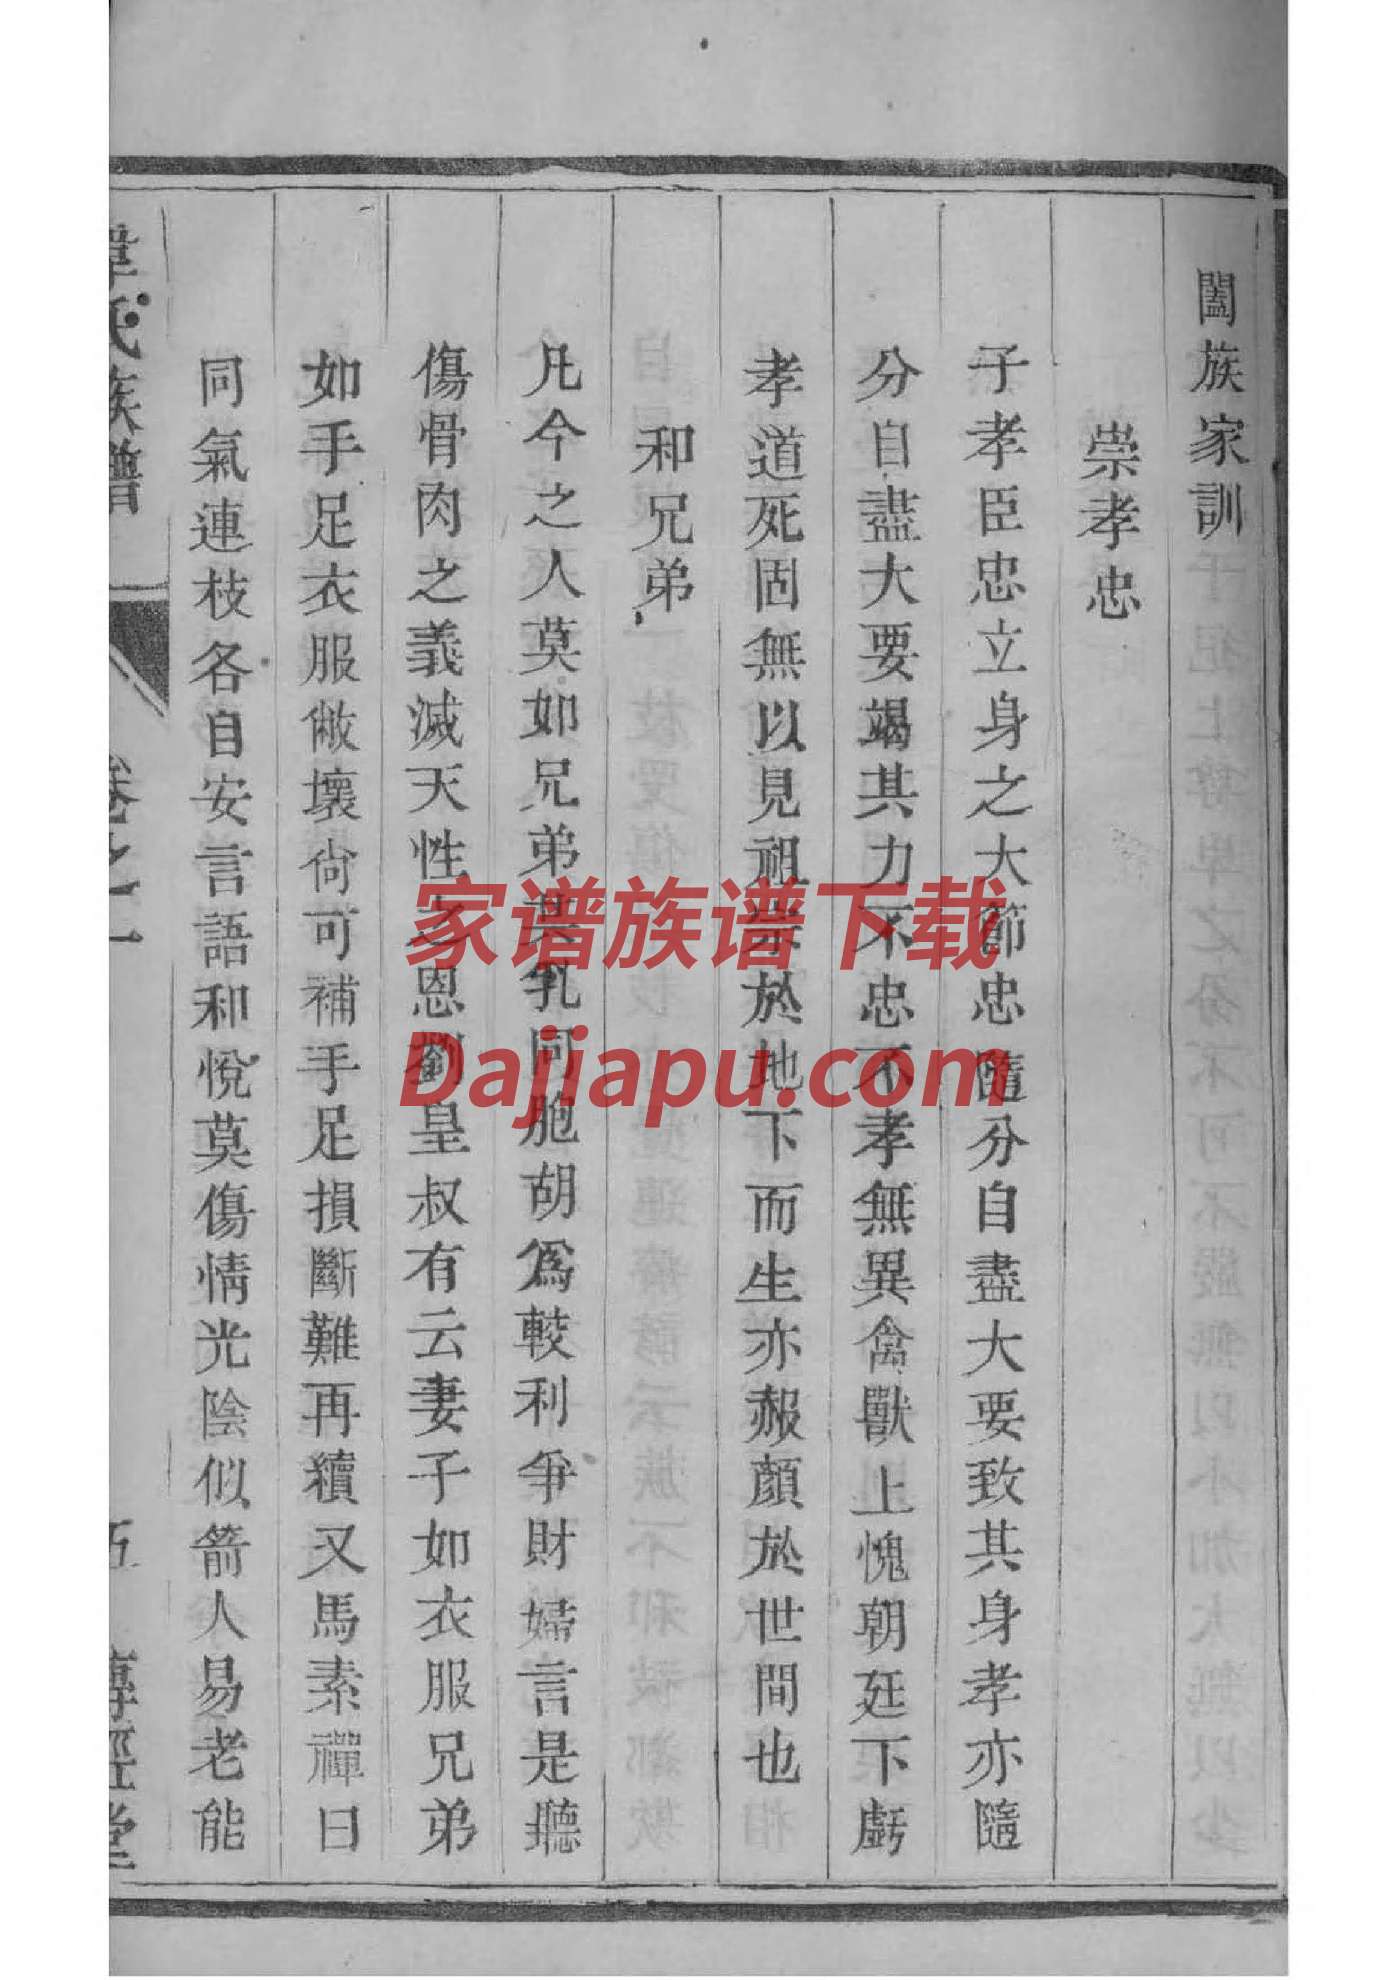 闔族家訓
崇孝忠
子孝臣忠立身之大節忠隨分自盡大要致其身孝亦隨
分自盡大要竭其力不忠不孝無異禽獸上愧朝廷下虧
孝道死固無以見祖宗於地下而生亦赧顏於世間也
和兄弟
凡今之人莫如兄弟共乳同胞胡爲較利爭財婦言是聽
傷骨肉之義滅天性之恩劉皇叔有云妻子如衣服兄弟
如手足衣服敝壞尙可補手足損斷難再續又馬素禪曰
同氣連枝各自安言語和悅莫傷情光陰似箭人易老能
氏族譜
卷之一
五
傳經堂
家谱族谱下载
Dajiapu.com